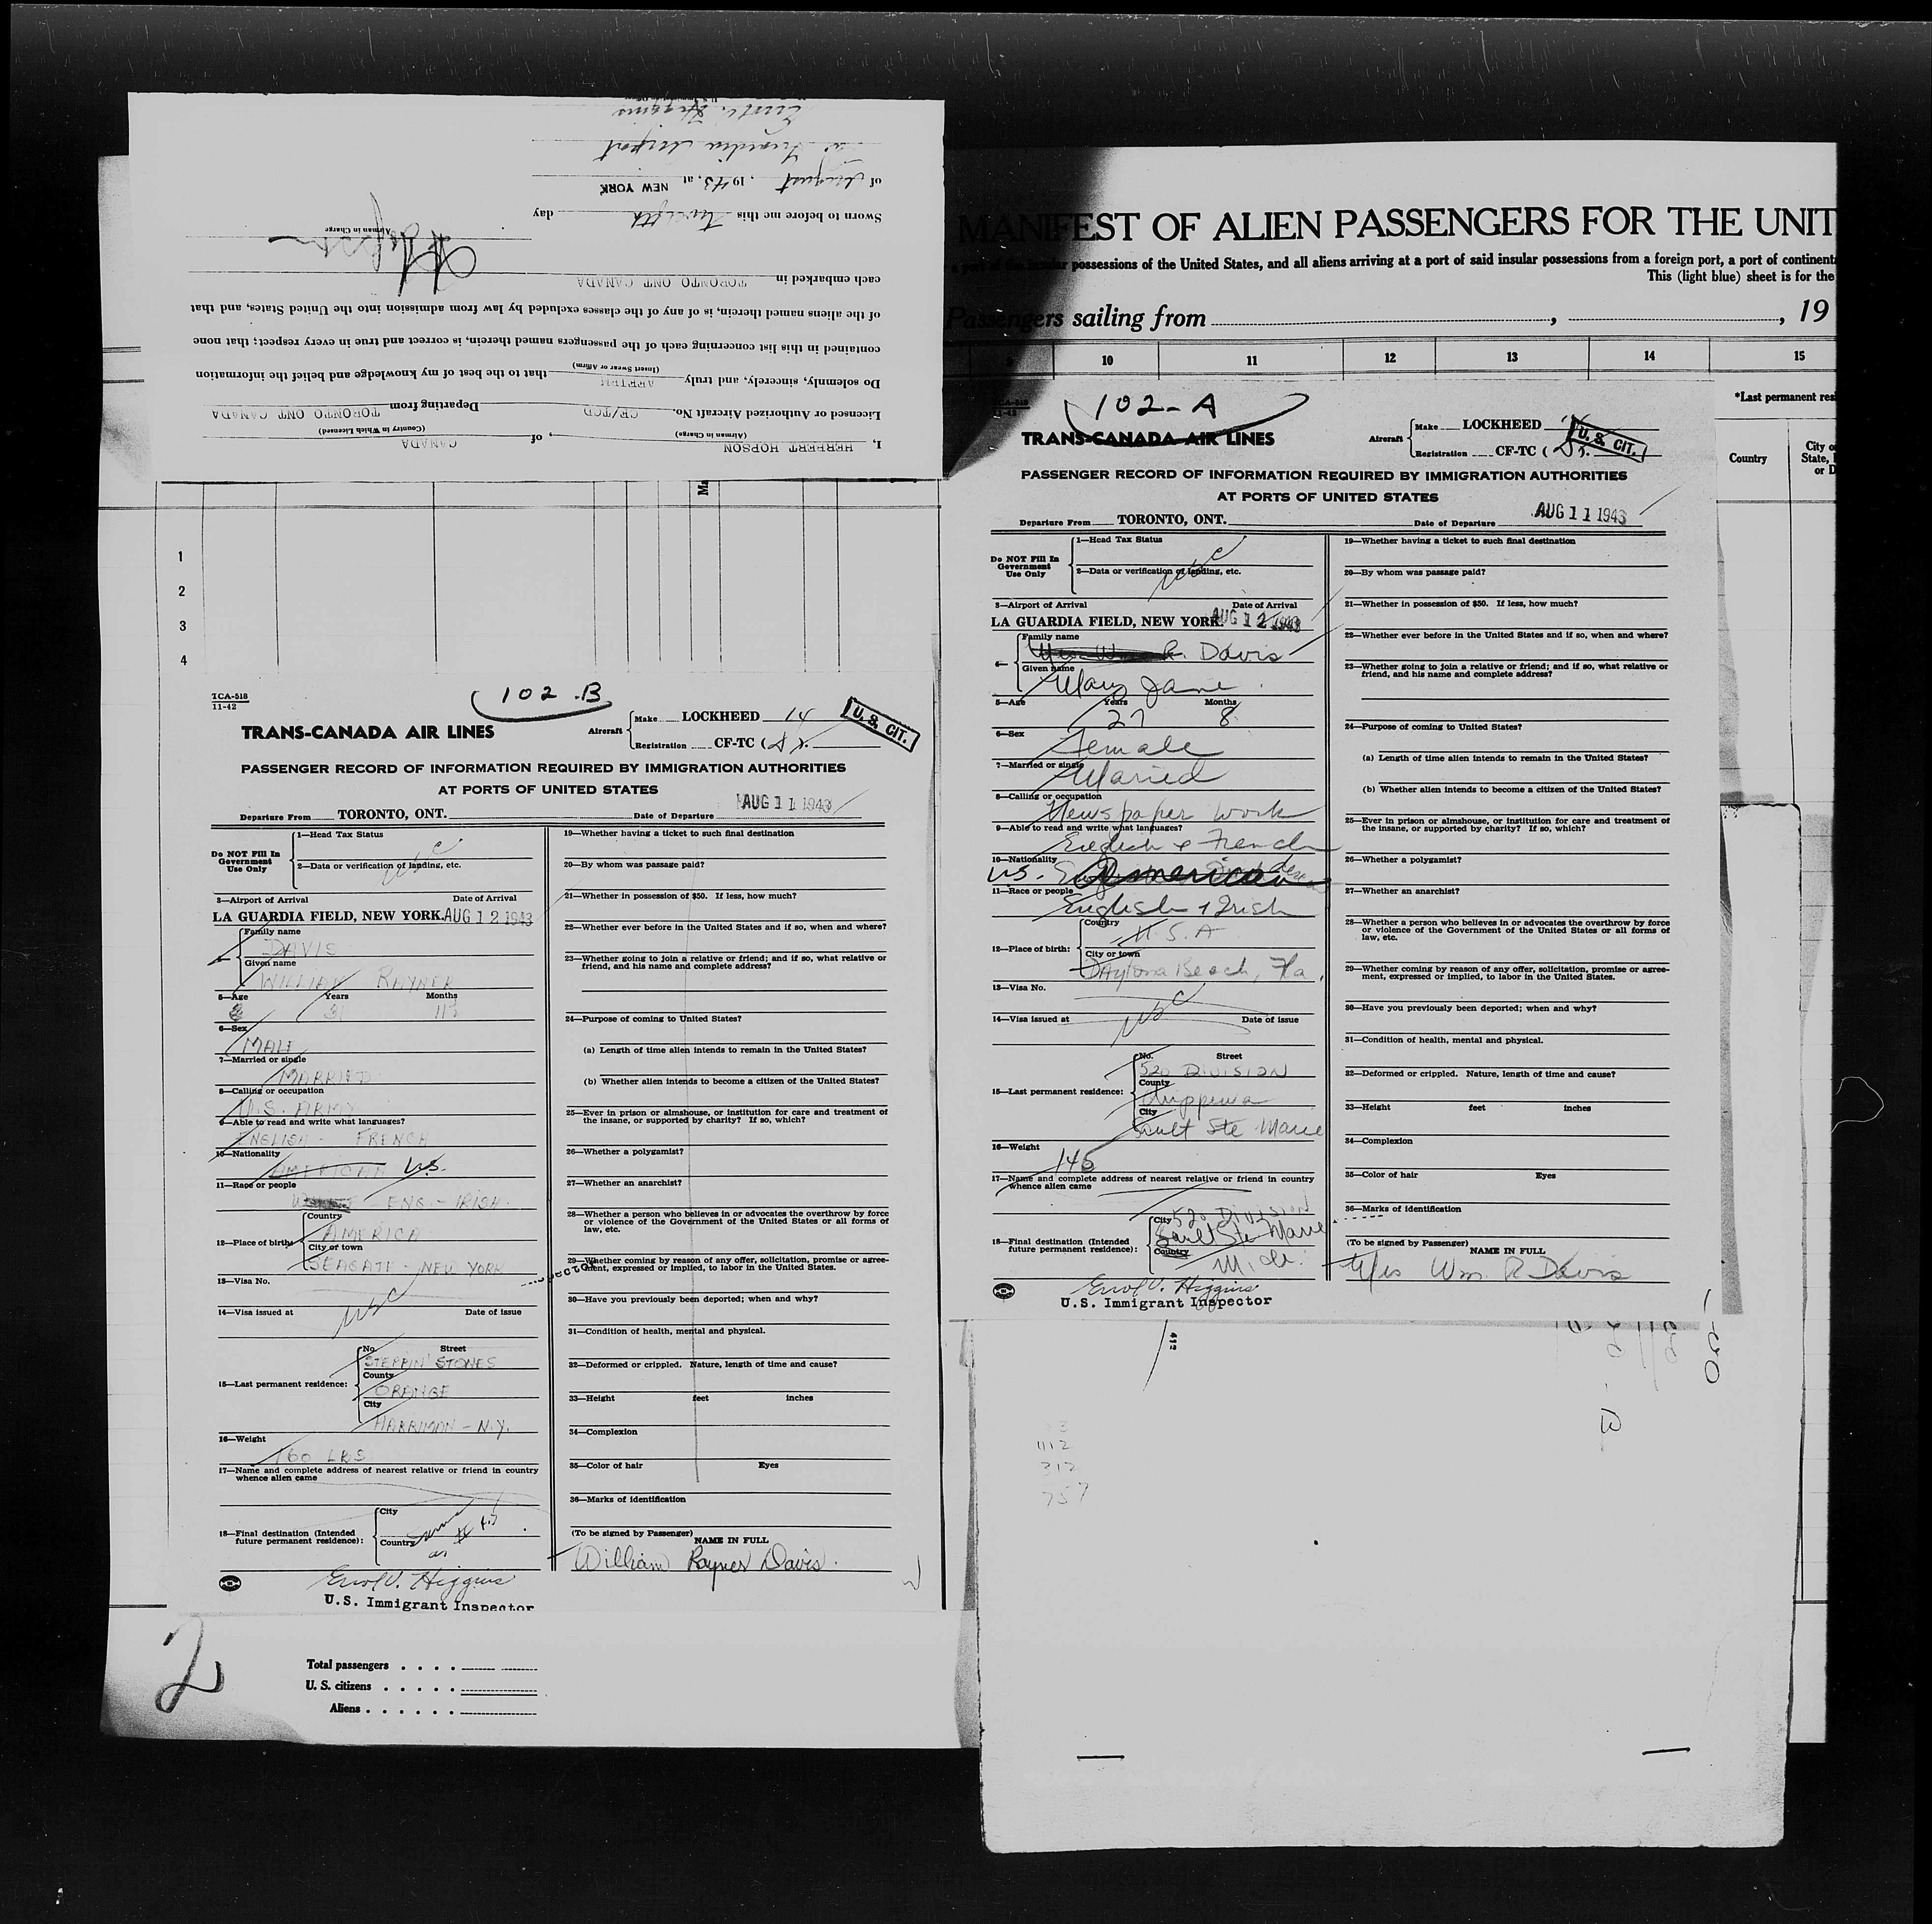 I, HERBERT HOPSON, of CANADA
(Airman in Charge) (Country in Which Licensed)
Licensed or Authorized Aircraft No. CF/TCD Departing from TORONTO ONT CANADA
Do solemnly, sincerely, and truly AFFIRM that to the best of my knowledge and belief the information
(Insert Swear or Affirm)
contained in this list concerning each of the passengers named therein, is correct and true in every respect; that none
of the aliens named therein, is of any of the classes excluded by law from admission into the United States, and that
each embarked in TORONTO ONT CANADA
Airman in Charge
Sworn to before me this twelfth day
of August, 1943, at NEW YORK
La Guardia Airport
Errol V. Higgins
1
2
3
4
TCA-518
11-42
102-B
TRANS-CANADA AIR LINES
Aircraft Make LOCKHEED 14
Registration CF-TC (
U. S. CIT.
PASSENGER RECORD OF INFORMATION REQUIRED BY IMMIGRATION AUTHORITIES
AT PORTS OF UNITED STATES
Departure From TORONTO, ONT. Date of Departure AUG 11 1943
Do NOT Fill In
Government
Use Only
1—Head Tax Status
2—Data or verification of landing, etc.
USC
3—Airport of Arrival Date of Arrival
LA GUARDIA FIELD, NEW YORK. AUG 12 1943
4— Family name
DAVIS
Given name
WILLIAM RAYNER
5—Age Years Months
31 11½
6—Sex
MALE
7—Married or single
MARRIED
8—Calling or occupation
U.S. ARMY
9—Able to read and write what languages?
ENGLISH - FRENCH
10—Nationality
AMERICAN U.S.
11—Race or people
ENG - IRISH
12—Place of birth:
Country
AMERICA
City or town
SEAGATE - NEW YORK
13—Visa No.
14—Visa issued at Date of issue
USC
15—Last permanent residence:
No. Street
STEPPIN' STONES
County
ORANGE
City
HARRIMAN - N.Y.
16—Weight
160 LBS
17—Name and complete address of nearest relative or friend in country
whence alien came
18—Final destination (Intended
future permanent residence):
City
Country
Same as #15
Errol V. Higgins
U.S. Immigrant Inspector
19—Whether having a ticket to such final destination
20—By whom was passage paid?
21—Whether in possession of $50. If less, how much?
22—Whether ever before in the United States and if so, when and where?
23—Whether going to join a relative or friend; and if so, what relative or
friend, and his name and complete address?
24—Purpose of coming to United States?
(a) Length of time alien intends to remain in the United States?
(b) Whether alien intends to become a citizen of the United States?
25—Ever in prison or almshouse, or institution for care and treatment of
the insane, or supported by charity? If so, which?
26—Whether a polygamist?
27—Whether an anarchist?
28—Whether a person who believes in or advocates the overthrow by force
or violence of the Government of the United States or all forms of
law, etc.
29—Whether coming by reason of any offer, solicitation, promise or agree-
ment, expressed or implied, to labor in the United States.
30—Have you previously been deported; when and why?
31—Condition of health, mental and physical.
32—Deformed or crippled. Nature, length of time and cause?
33—Height feet inches
34—Complexion
35—Color of hair Eyes
36—Marks of identification
(To be signed by Passenger)
NAME IN FULL
William Rayner Davis.
2
Total passengers
U. S. citizens
Aliens
MANIFEST OF ALIEN PASSENGERS FOR THE UNIT
possessions of the United States, and all aliens arriving at a port of said insular possessions from a foreign port, a port of continent
This (light blue) sheet is for the
Passengers sailing from , , 19
9 10 11 12 13 14 15
*Last permanent res
Country
City o
State,
or D
TCA-518
11-42
102-A
TRANS-CANADA AIR LINES
Aircraft Make LOCKHEED
Registration CF-TC (
U. S. CIT.
PASSENGER RECORD OF INFORMATION REQUIRED BY IMMIGRATION AUTHORITIES
AT PORTS OF UNITED STATES
Departure From TORONTO, ONT. Date of Departure AUG 11 1943
Do NOT Fill In
Government
Use Only
1—Head Tax Status
2—Data or verification of landing, etc.
USC
3—Airport of Arrival Date of Arrival
LA GUARDIA FIELD, NEW YORK. AUG 12 1943
4— Family name
Mrs Wm R. Davis
Given name
Mary Jane
5—Age Years Months
27 8
6—Sex
Female
7—Married or single
Married
8—Calling or occupation
Newspaper work
9—Able to read and write what languages?
English & French
10—Nationality
U.S. American
11—Race or people
English & Irish
12—Place of birth:
Country
U.S.A
City or town
Daytona Beach, Fla.
13—Visa No.
14—Visa issued at Date of issue
USC
15—Last permanent residence:
No. Street
520 DIVISION
County
Chippewa
City
Sault Ste Marie
16—Weight
145
17—Name and complete address of nearest relative or friend in country
whence alien came
18—Final destination (Intended
future permanent residence):
City 520 DIVISION
Sault Ste Marie
Country
Mich.
Errol V. Higgins
U.S. Immigrant Inspector
19—Whether having a ticket to such final destination
20—By whom was passage paid?
21—Whether in possession of $50. If less, how much?
22—Whether ever before in the United States and if so, when and where?
23—Whether going to join a relative or friend; and if so, what relative or
friend, and his name and complete address?
24—Purpose of coming to United States?
(a) Length of time alien intends to remain in the United States?
(b) Whether alien intends to become a citizen of the United States?
25—Ever in prison or almshouse, or institution for care and treatment of
the insane, or supported by charity? If so, which?
26—Whether a polygamist?
27—Whether an anarchist?
28—Whether a person who believes in or advocates the overthrow by force
or violence of the Government of the United States or all forms of
law, etc.
29—Whether coming by reason of any offer, solicitation, promise or agree-
ment, expressed or implied, to labor in the United States.
30—Have you previously been deported; when and why?
31—Condition of health, mental and physical.
32—Deformed or crippled. Nature, length of time and cause?
33—Height feet inches
34—Complexion
35—Color of hair Eyes
36—Marks of identification
(To be signed by Passenger)
NAME IN FULL
Mrs Wm. R Davis
412
312
757